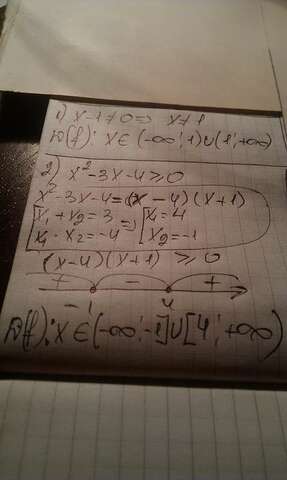 1) x-1≠0 => x≠1
D(f): x ∈ (-∞; 1) ∪ (1; +∞)
2) x²-3x-4 ≥ 0
x²-3x-4 = (x-4)(x+1)
x₁ + x₂ = 3 => x₁ = 4
x₁ · x₂ = -4 x₂ = -1
(x-4)(x+1) ≥ 0
+ - +
-1 4
D(f): x ∈ (-∞; -1] ∪ [4; +∞)